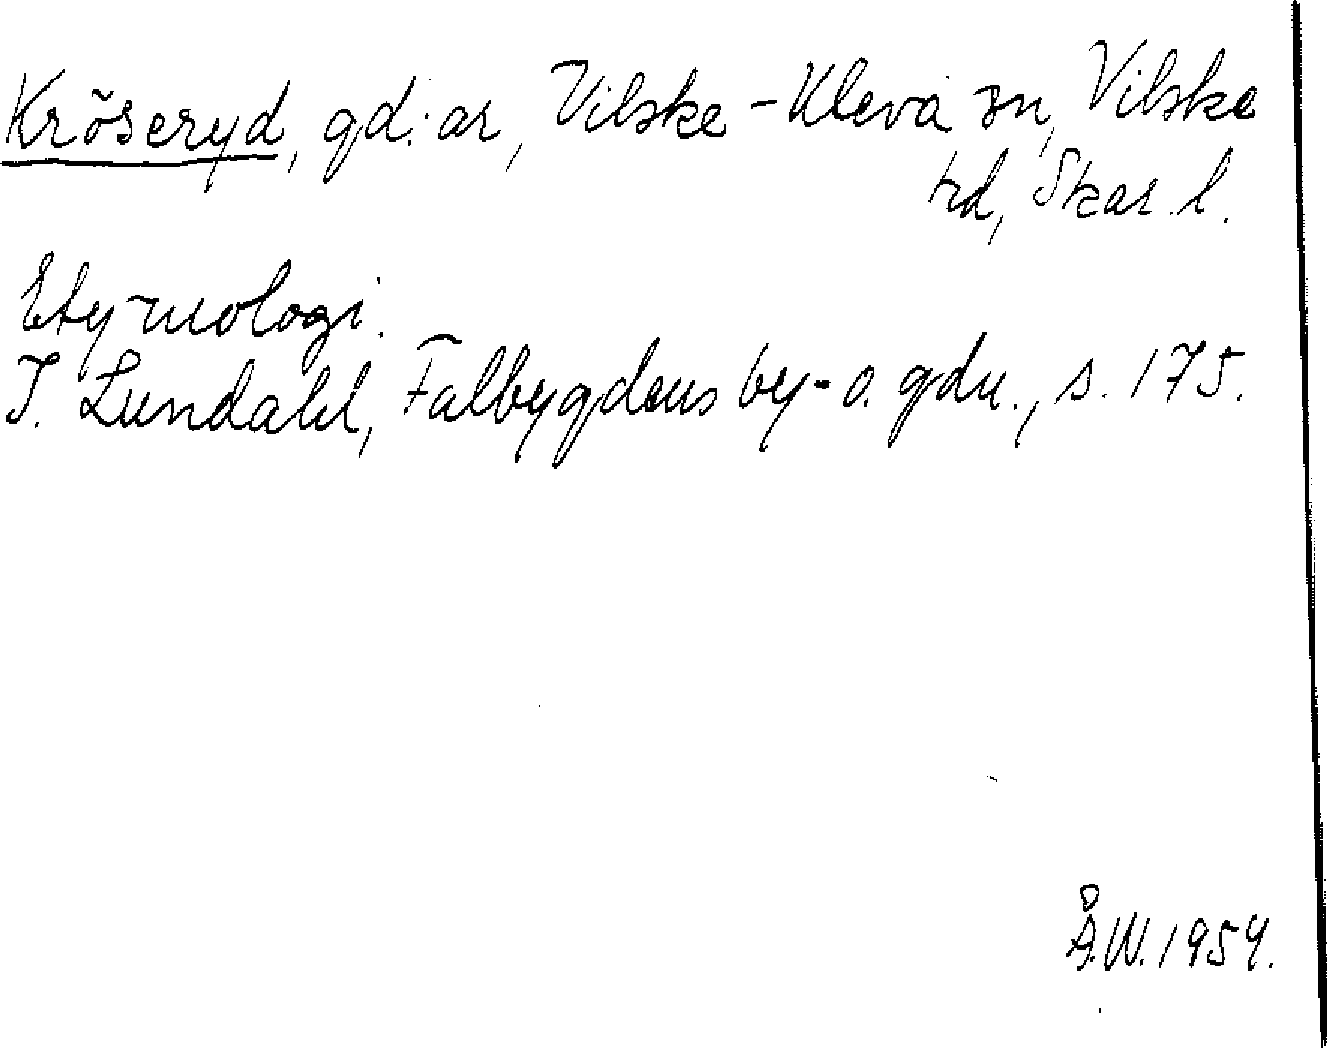 Kröseryd, gd:ar, Vilske-Kleva sn, Vilske
hd, Skar. l.
Etymologi.
I. Lundahl, Falbygdens by- o. gdn., s. 175.
Å.W. 1954.